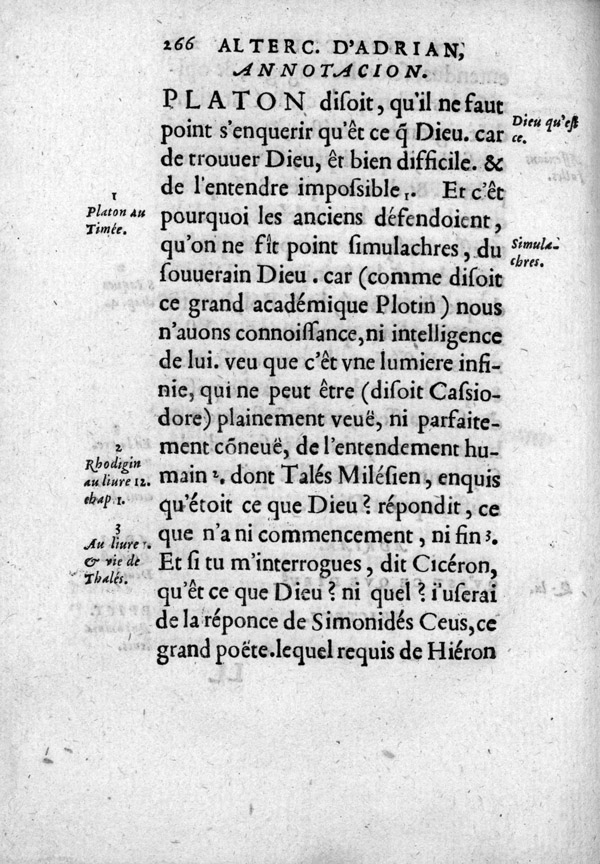 266 ALTERC. D'ADRIAN,
ANNOTACION.
PLATON diſoit, qu'il ne faut
point s'enquerir qu'êt ce q̃ Dieu. car
Dieu qu'eſt
ce.
de trouuer Dieu, êt bien difficile. &
de l'entendre impoſsible 1. Et c'êt
1
Platon au
Timée.
pourquoi les anciens défendoient,
qu'on ne fît point ſimulachres, du
Simula-
chres.
ſouuerain Dieu. car (comme diſoit
ce grand académique Plotin) nous
n'auons connoiſſance, ni intelligence
de lui. veu que c'êt vne lumiere infi-
nie, qui ne peut être (diſoit Caſsio-
dore) plainement veuë, ni parfaite-
ment cõneuë, de l'entendement hu-
2
Rhodigin
au liure 12.
chap 1.
main 2. dont Talés Miléſien, enquis
qu'étoit ce que Dieu? répondit, ce
que n'a ni commencement, ni fin 3.
3
Au liure 1.
& vie de
Thalés.
Et ſi tu m'interrogues, dit Cicéron,
qu'êt ce que Dieu? ni quel? i'uſerai
de la réponce de Simonidés Ceus, ce
grand poëte. lequel requis de Hiéron